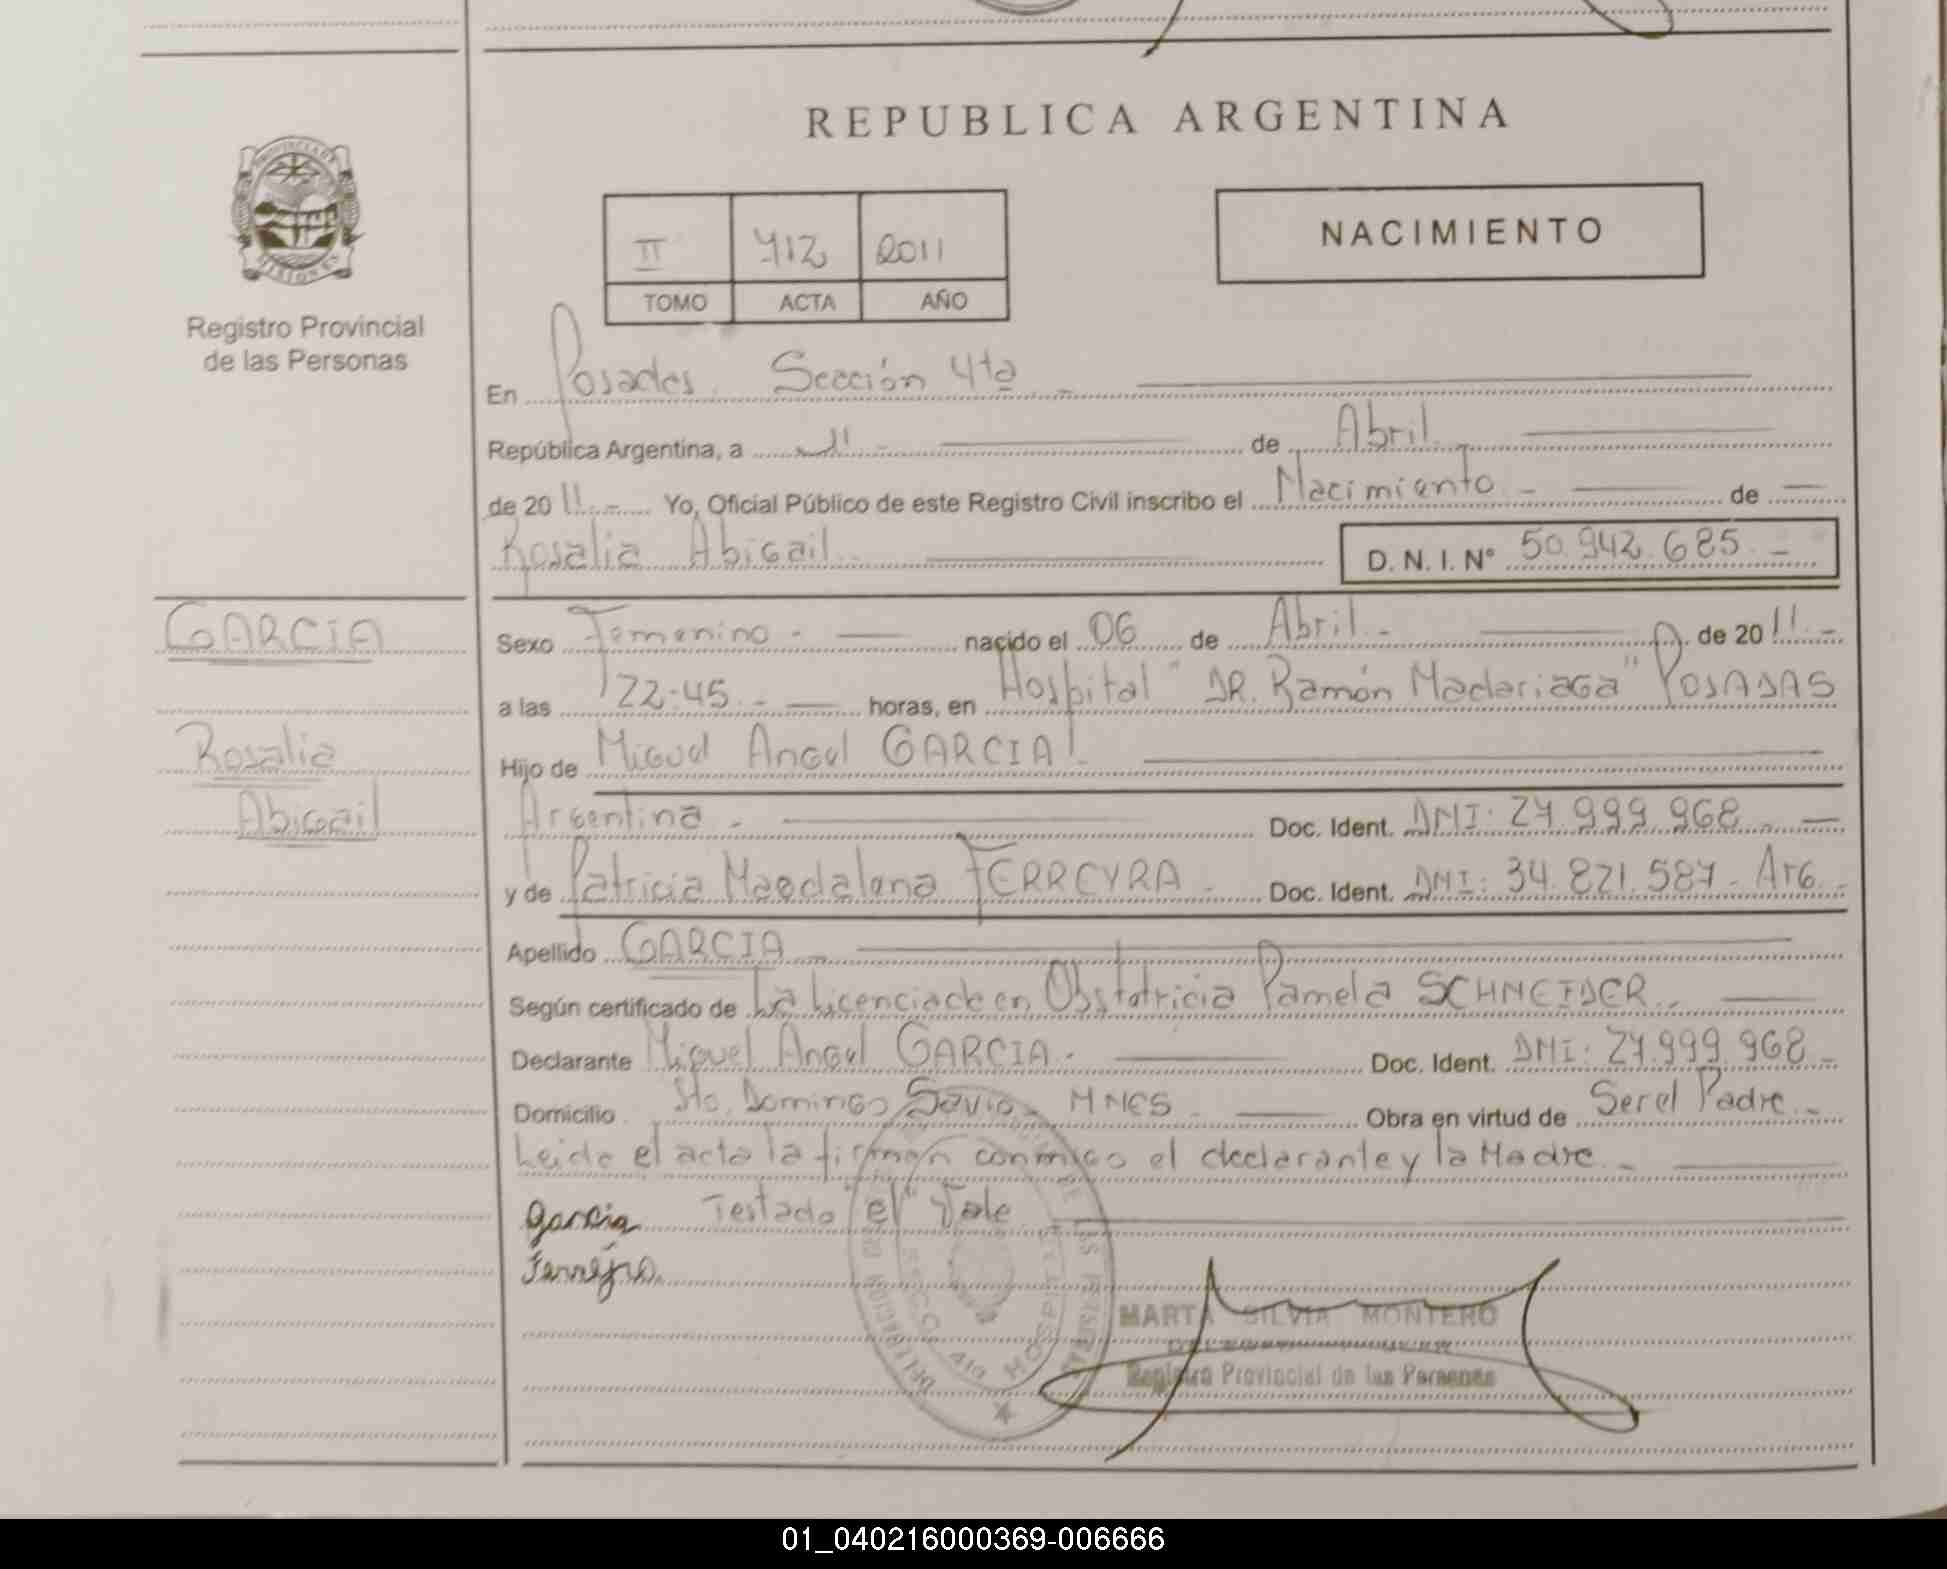 REPUBLICA ARGENTINA
PROVINCIA DE MISIONES
Registro Provincial
de las Personas
II 412 2011
TOMO ACTA AÑO
NACIMIENTO
En Posadas. Sección 4ta -
República Argentina, a 11 - de Abril.-
de 20 11.- Yo, Oficial Público de este Registro Civil inscribo el Nacimiento - de
Rosalia Abigail. D. N. I. Nº 50.942.685.-
GARCIA
Rosalia
Abigail
Sexo Femenino - nacido el 06 de Abril.- de 20 11.-
a las 22:45.- horas, en Hospital "DR. Ramón Madariaga" POSADAS
Hijo de Miguel Angel GARCIA.
Argentina.- Doc. Ident. DNI: 27.999.968.-
y de Patricia Magdalena FERREYRA.- Doc. Ident. DNI: 34.821.587- Arg.-
Apellido GARCIA
Según certificado de La Licenciada en Obstetricia Pamela SCHNEIDER.-
Declarante Miguel Angel GARCIA.- Doc. Ident. DNI: 27.999.968.-
Domicilio Sto. Domingo Savio- MNES. Obra en virtud de Ser el Padre.-
Leida el acta la firman conmigo el declarante y la Madre.-
Garcia Testado "el" Vale
Ferreyra
MARTA SILVIA MONTERO
Registro Provincial de las Personas
HOSPITAL
01_040216000369-006666